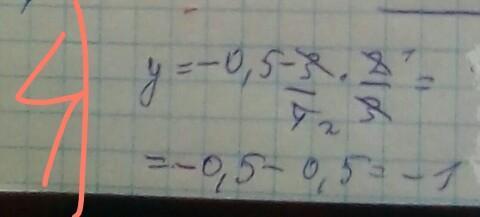 4)
y = -0,5 - 3/4 · 2/3 =
= -0,5 - 0,5 = -1